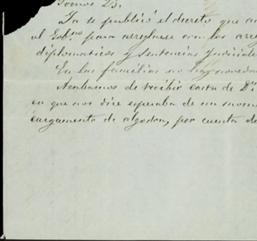 Tomos 23.
Ya se publicó el decreto que au
el Gob.no para arreglarse con los arre
diplomaticos y sentencias judiciale
En las familias no hay noveda
Acabamos de recibir carta de D.n
en que nos dice esperaba de un mome
cargamento de algodon, por cuenta de